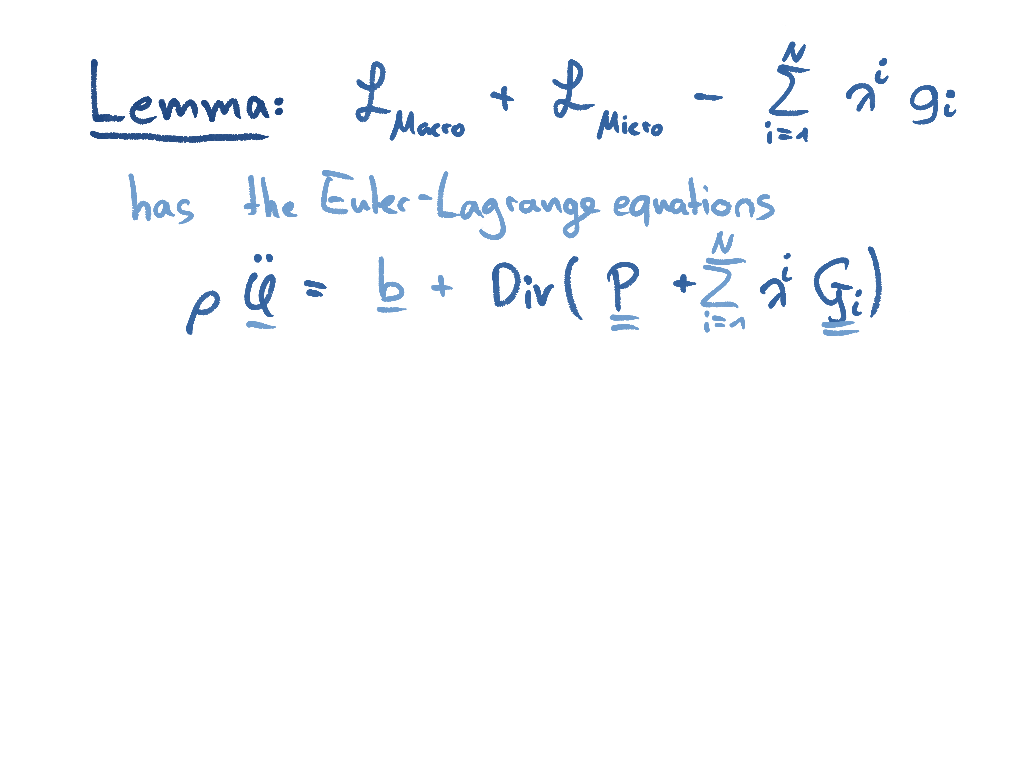 Lemma: ℒ_Macro + ℒ_Micro − ∑_{i=1}^{N} λ^i g_i
has the Euler-Lagrange equations
ρ φ̈ = b + Div( P + ∑_{i=1}^{N} λ^i G_i )